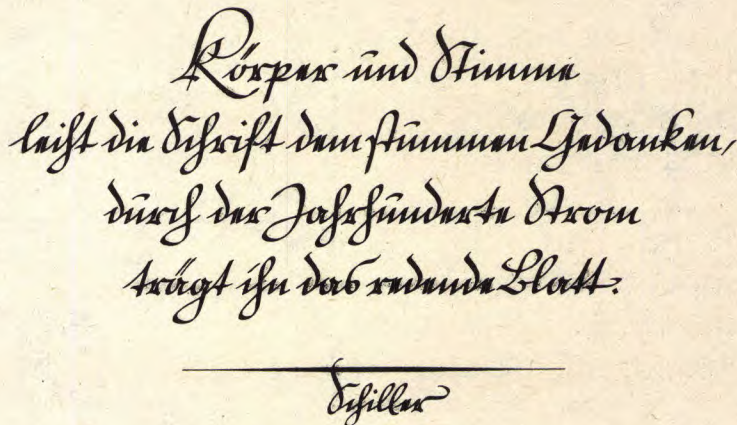 Körper und Stimme
leiht die Schrift dem stummen Gedanken,
durch der Jahrhunderte Strom
trägt ihn das redende Blatt.
Schiller